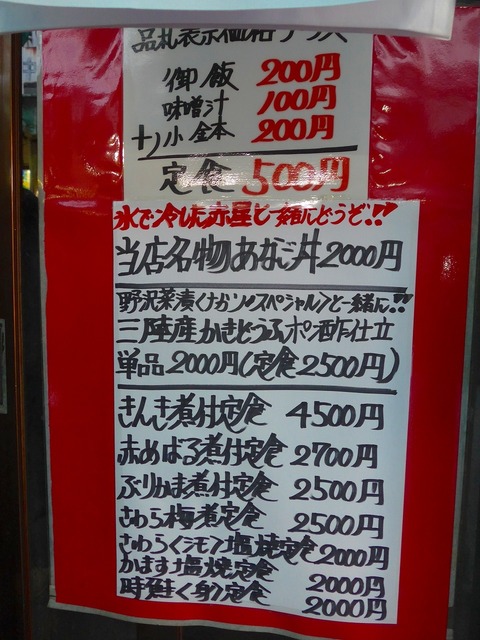 品札表示価格プラス
御飯 200円
味噌汁 100円
+)小鉢 200円
定食 500円
氷で冷した赤星と一緒にどうぞ!!
当店名物あなご丼2000円
野沢菜漬〈ナカソ・スペシャル〉と一緒に!!
三陸産かきどうふポン酢仕立
単品2000円(定食2500円)
きんき煮付定食 4500円
赤めばる煮付定食 2700円
ぶりかま煮付定食 2500円
さわら梅煮定食 2500円
さわら〈レモン〉塩焼定食 2000円
かます塩焼定食 2000円
時鮭〈身〉定食 2000円